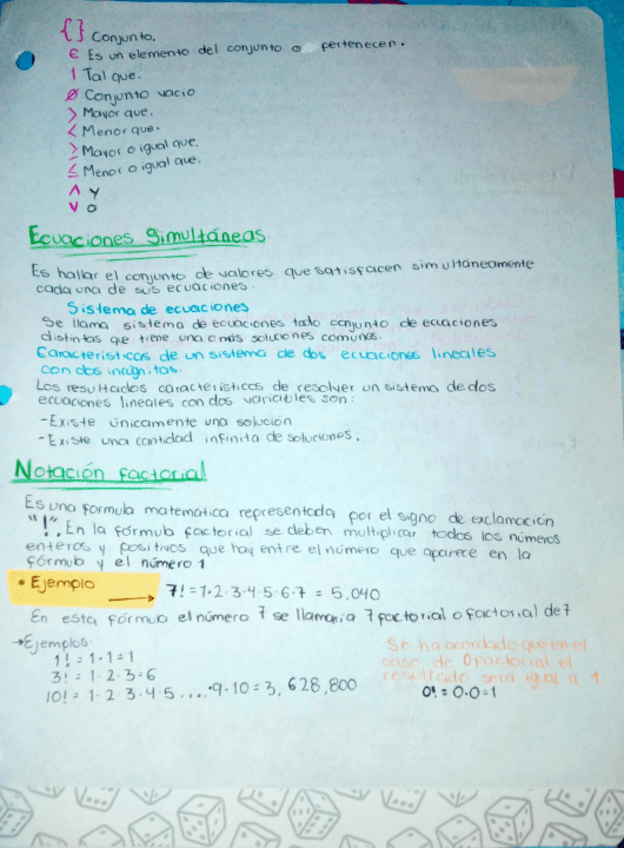 { } Conjunto.
∈ Es un elemento del conjunto o pertenecen.
| Tal que.
Ø Conjunto vacio
> Mayor que.
< Menor que.
≥ Mayor o igual que.
≤ Menor o igual que.
∧ Y
∨ O
Ecuaciones Simultáneas
Es hallar el conjunto de valores que satisfacen simultáneamente
cada una de sus ecuaciones.
Sistema de ecuaciones
Se llama sistema de ecuaciones todo conjunto de ecuaciones
distintas que tiene una o más soluciones comunes.
Características de un sistema de dos ecuaciones lineales
con dos incógnitas.
Los resultados característicos de resolver un sistema de dos
ecuaciones lineales con dos variables son:
-Existe únicamente una solución
-Existe una cantidad infinita de soluciones.
Notación factorial
Es una formula matemática representada por el signo de exclamación
"!". En la fórmula factorial se deben multiplicar todos los números
enteros y positivos que hay entre el número que aparece en la
fórmula y el número 1
• Ejemplo → 7! = 1·2·3·4·5·6·7 = 5,040
En esta fórmula el número 7 se llamaria 7 factorial o factorial de 7
→Ejemplos:
1! = 1·1=1
3! = 1·2·3=6
10! = 1·2·3·4·5....·9·10=3,628,800
Se ha acordado que en el
caso de 0 factorial el
resultado sera igual a 1
0! = 0·0=1